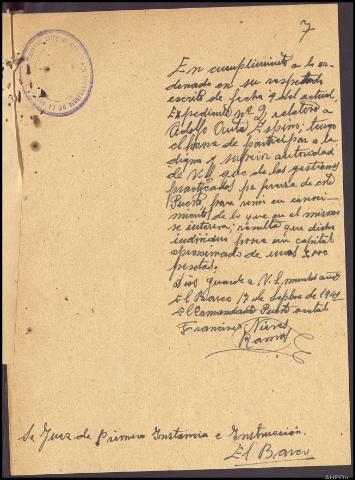 7
En cumplimiento a lo or-
denado en su respetado
escrito de fecha 9 del actual
Expediente nº 9, relativo a
Adolfo Outa Espiño; tengo
el honor de participar a la
digna y superior autoridad
de V.S. que de las gestiones
practicadas por fuerza de este
Puesto para venir en conoci-
miento, de lo que en el mismo
se interesa; resulta que dicho
individuo posee un capital
aproximado de unas 3.000
pesetas.
Dios guarde a V.S. muchos años
El Barco 17 de Sepbre de 1941
El Comandante Puesto acctal
Francisco Nieves
Ramos
Sr Juez de Primera Instancia e Instrucción.
El Barco
AHPOu